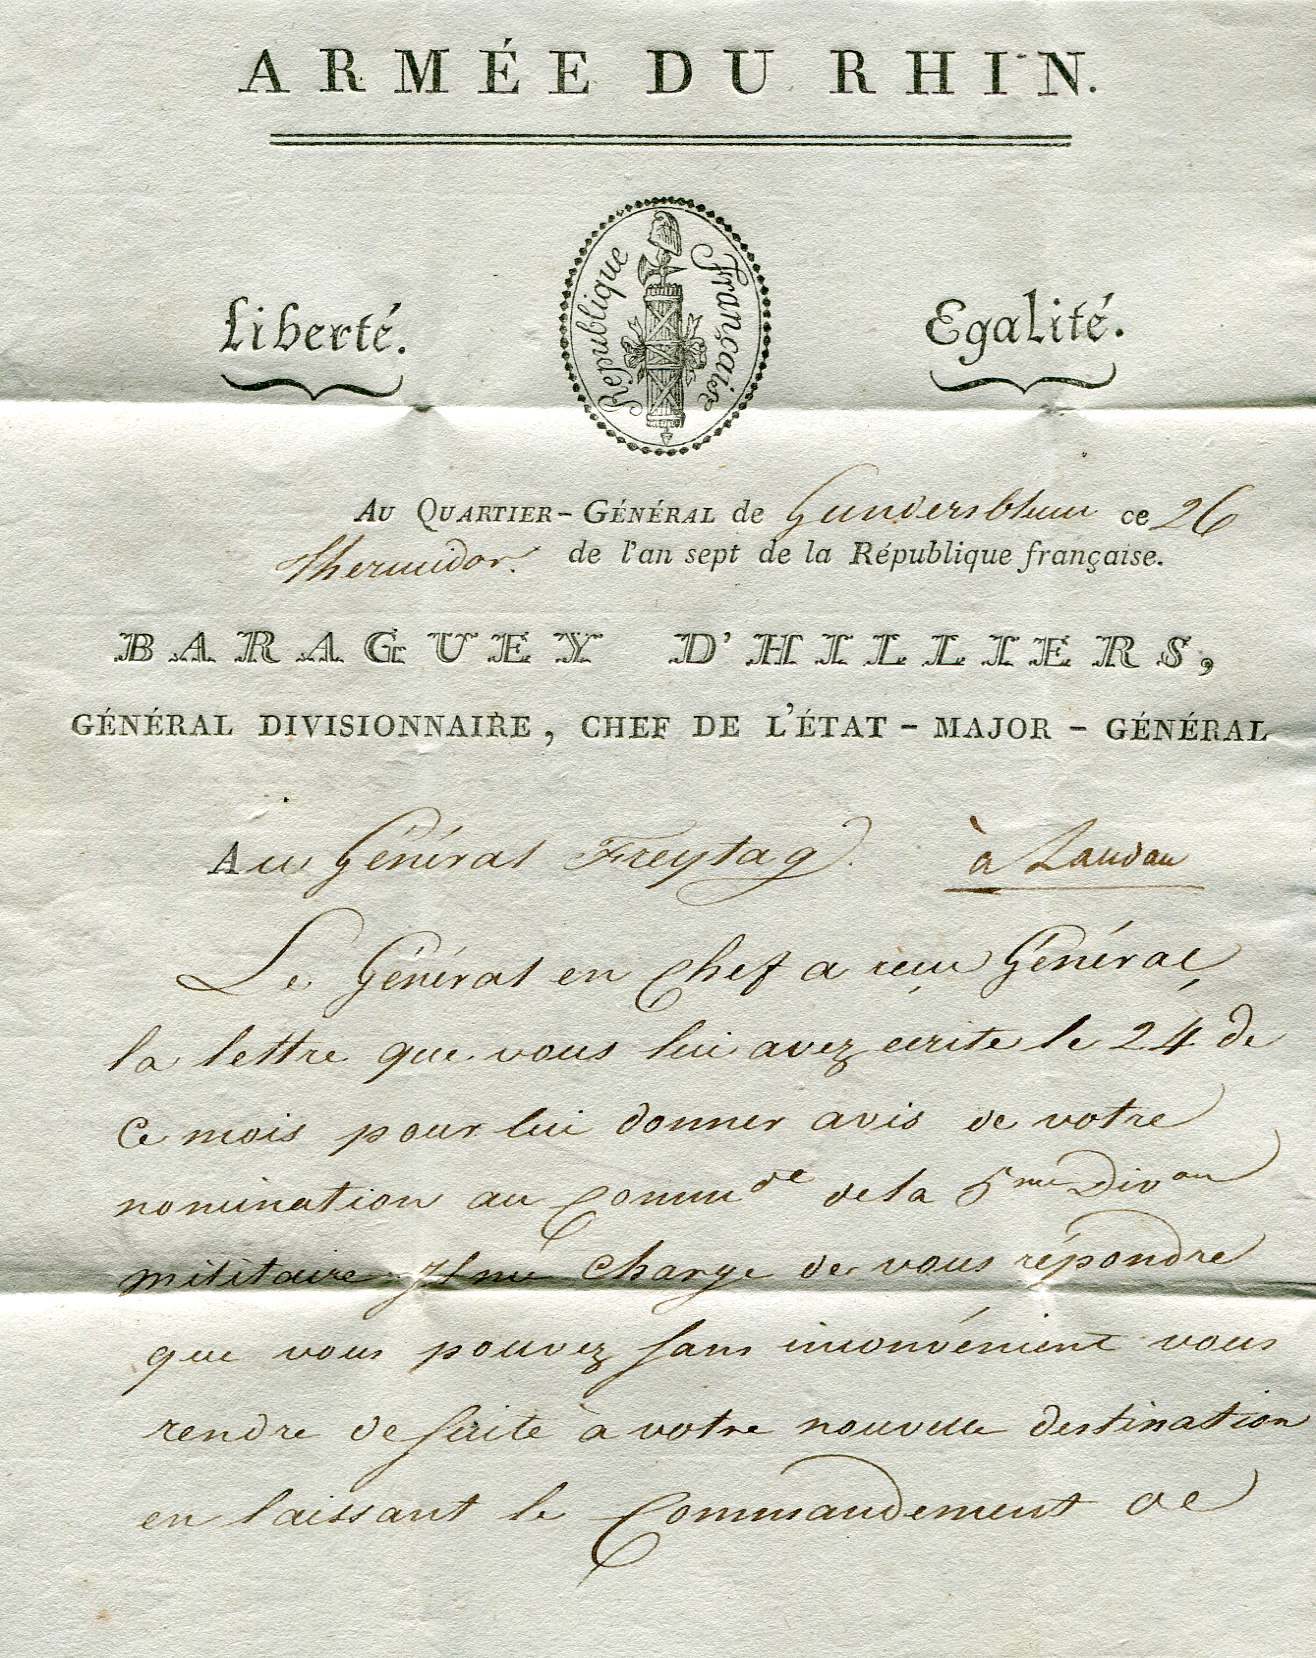 ARMÉE DU RHIN.
Liberté.
République Française
Egalité.
AU QUARTIER-GÉNÉRAL de Gundersblum ce 26
thermidor. de l'an sept de la République française.
BARAGUEY D'HILLIERS,
GÉNÉRAL DIVISIONNAIRE, CHEF DE L'ÉTAT-MAJOR-GÉNÉRAL
Au Général Freytag. à Landau
Le Général en Chef a reçu Général,
la lettre que vous lui avez écrite le 24 de
Ce mois pour lui donner avis de votre
nomination au Comm.de de la 5me Divon
militaire. Il me Charge de vous répondre
que vous pouvez sans inconvénient vous
rendre de suite à votre nouvelle destination
en laissant le Commandement de